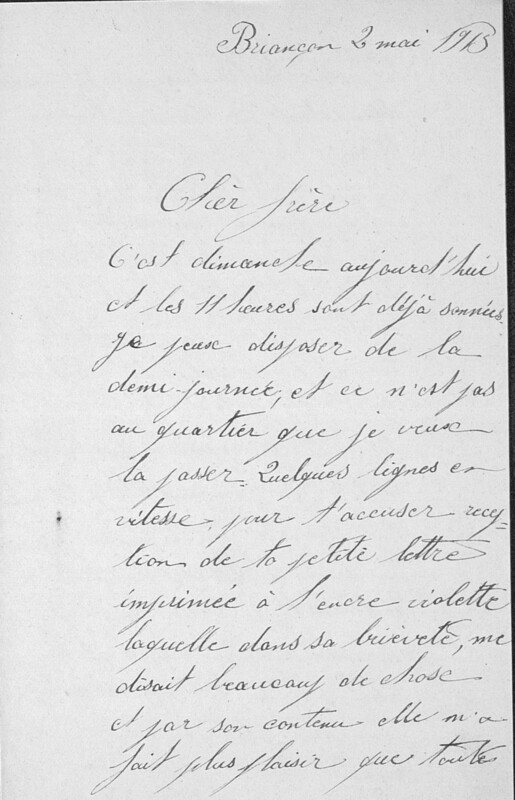 Briançon 2 mai 1915
Cher frère
C'est dimanche aujourd'hui
et les 11 heures sont déjà sonnées.
Je peux disposer de la
demi-journée, et ce n'est pas
au quartier que je veux
la passer. Quelques lignes en
vitesse, pour t'accuser recep=
tion de ta petite lettre
imprimée à l'encre violette
laquelle dans sa brièveté, me
disait beaucoup de chose
et par son contenu elle m'a
fait plus plaisir que toute